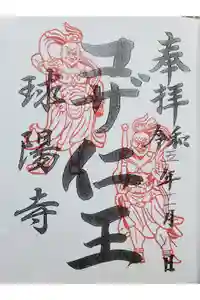 奉拝
令和三年二月 日
コザ仁王
球陽寺